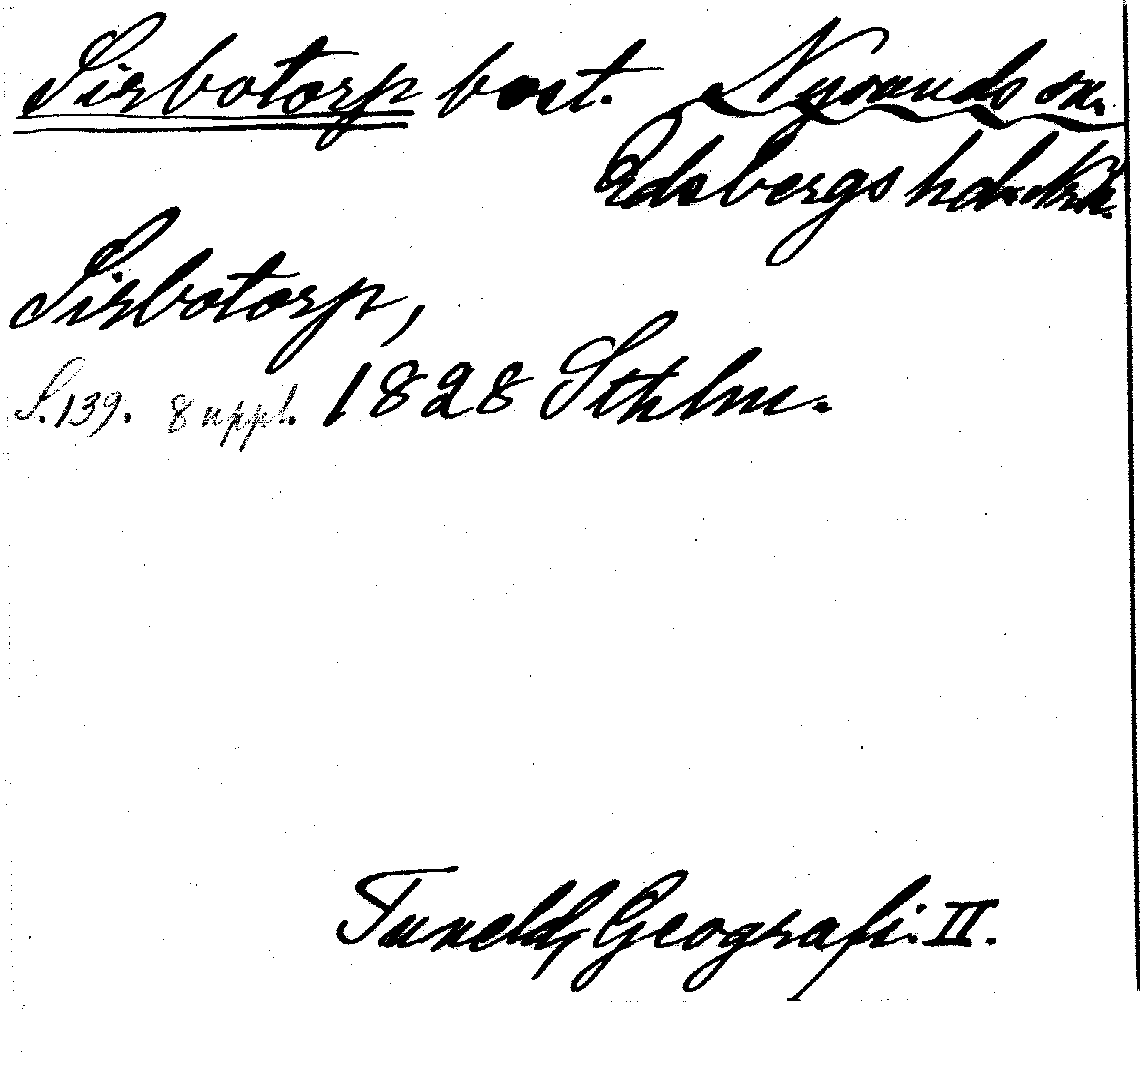 Sirbotorp bost. Nysunds sn.
Edsbergs hd.
Sirbotorp,
S. 139. 8 uppl. 1828 Sthlm.
Tuneld, Geografi. II.